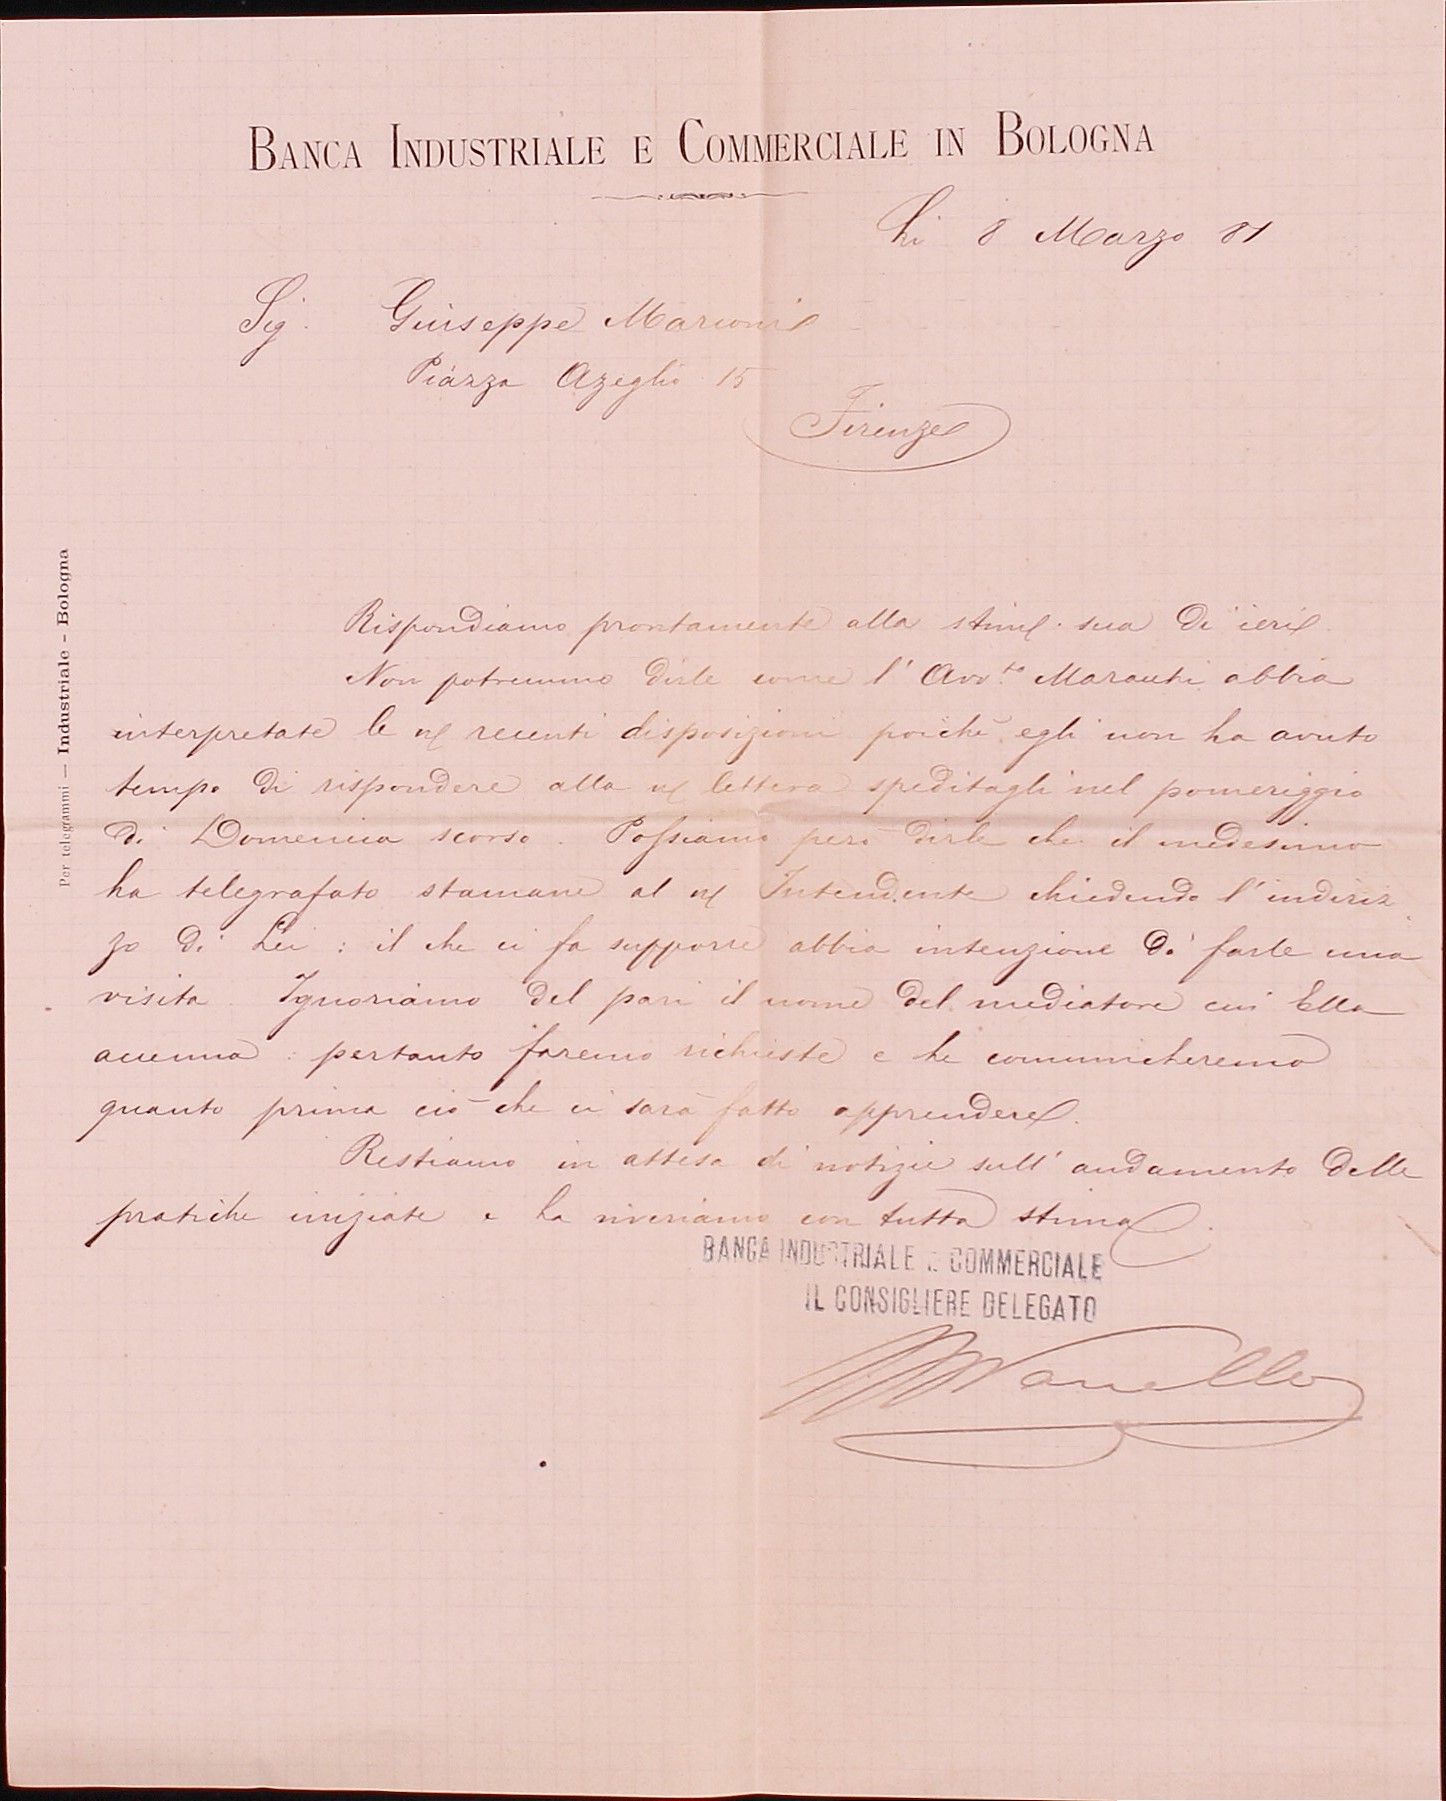 BANCA INDUSTRIALE E COMMERCIALE IN BOLOGNA
Li 8 Marzo 81
Sig. Giuseppe Marconi
Piazza Azeglio 15
Firenze
Per telegrammi — Industriale - Bologna
Rispondiamo prontamente alla stim. sua di ieri.
Non potremmo dirle come l'Avv.to Maranti abbia
interpretate le ns recenti disposizioni poichè egli non ha avuto
tempo di rispondere alla ns lettera speditagli nel pomeriggio
di Domenica scorsa. Possiamo però dirle che il medesimo
ha telegrafato stamane al ns Intendente chiedendo l'indiriz
zo di Lei: il che ci fa supporre abbia intenzione di farle una
visita. Ignoriamo del pari il nome del mediatore cui Ella
accenna: pertanto faremo richieste e le comunicheremo
quanto prima ciò che ci sarà fatto apprendere.
Restiamo in attesa di notizie sull'andamento delle
pratiche iniziate e la riveriamo con tutta stima.
BANCA INDUSTRIALE E COMMERCIALE
IL CONSIGLIERE DELEGATO